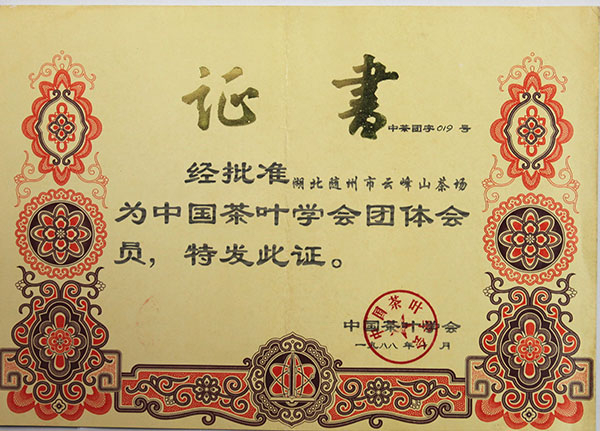 证书
中茶团字019号
经批准湖北随州市云峰山茶场
为中国茶叶学会团体会
员，特发此证。
中国茶叶学会
一九八八年 月